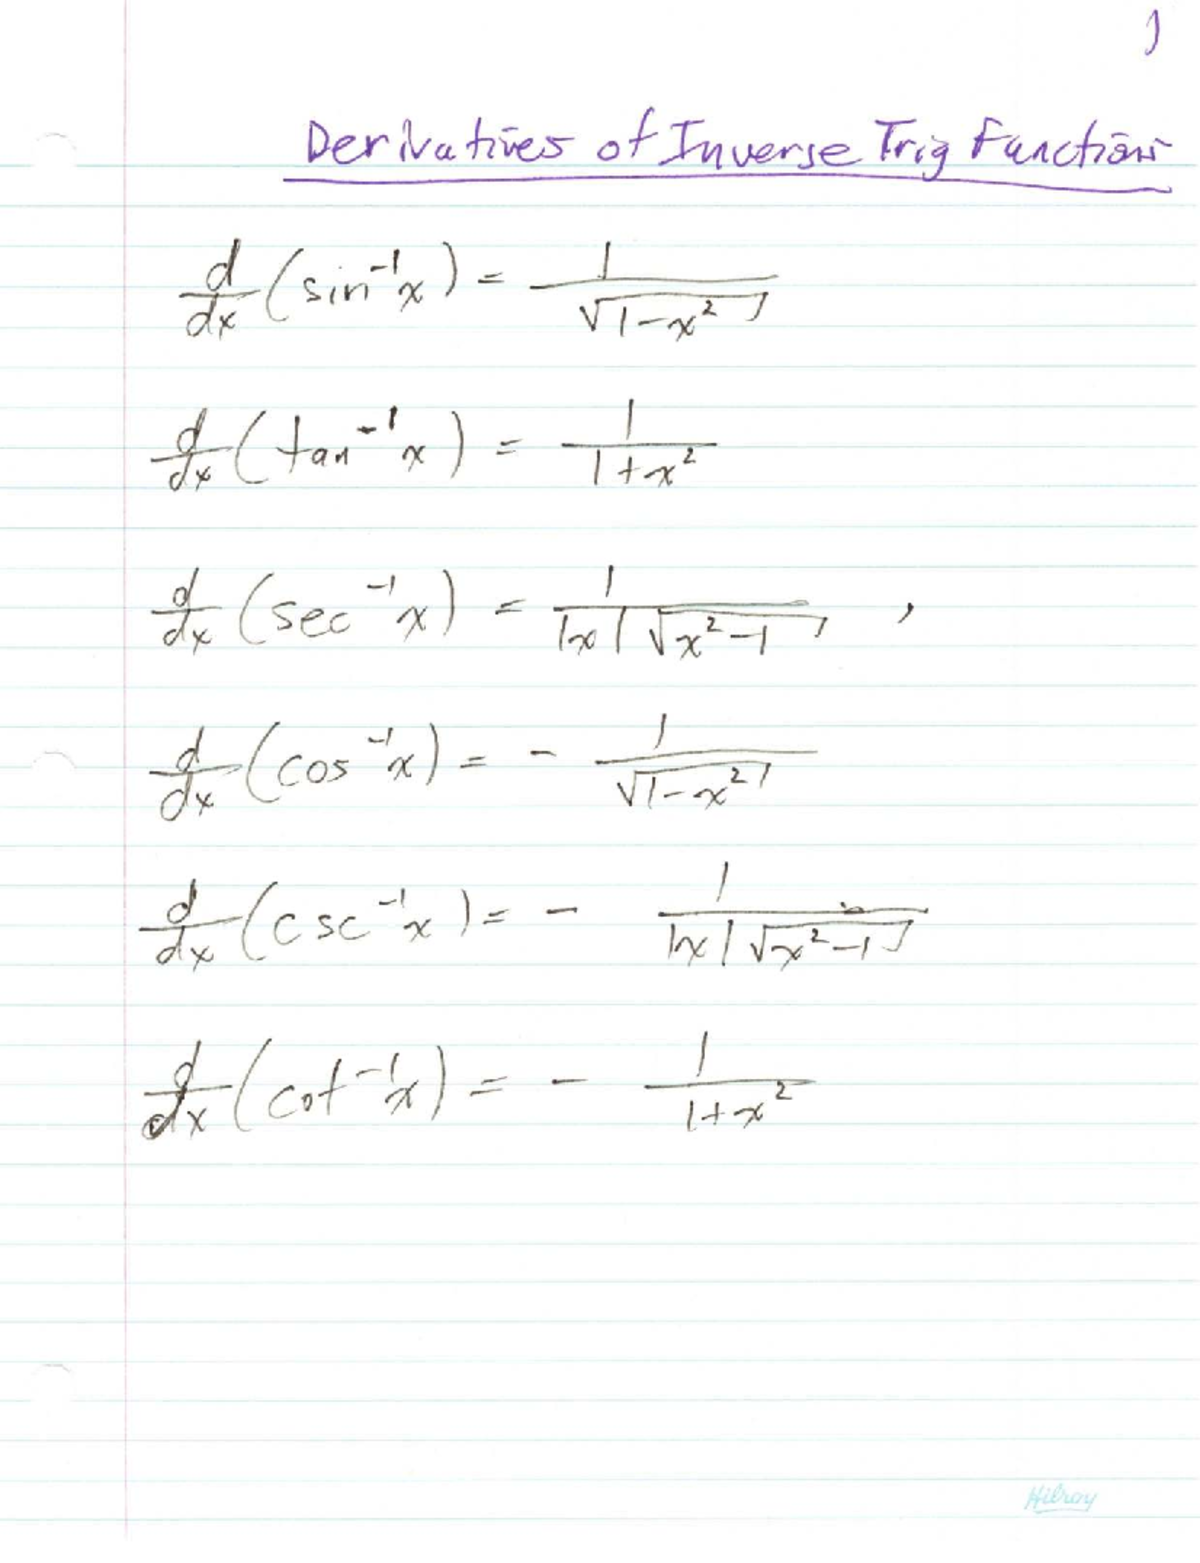 1
Derivatives of Inverse Trig Functions
d/dx (sin⁻¹x) = 1/√(1-x²)
d/dx (tan⁻¹x) = 1/(1+x²)
d/dx (sec⁻¹x) = 1/(|x|√(x²-1)) ,
d/dx (cos⁻¹x) = - 1/√(1-x²)
d/dx (csc⁻¹x) = - 1/(|x|√(x²-1))
d/dx (cot⁻¹x) = - 1/(1+x²)
Hilroy